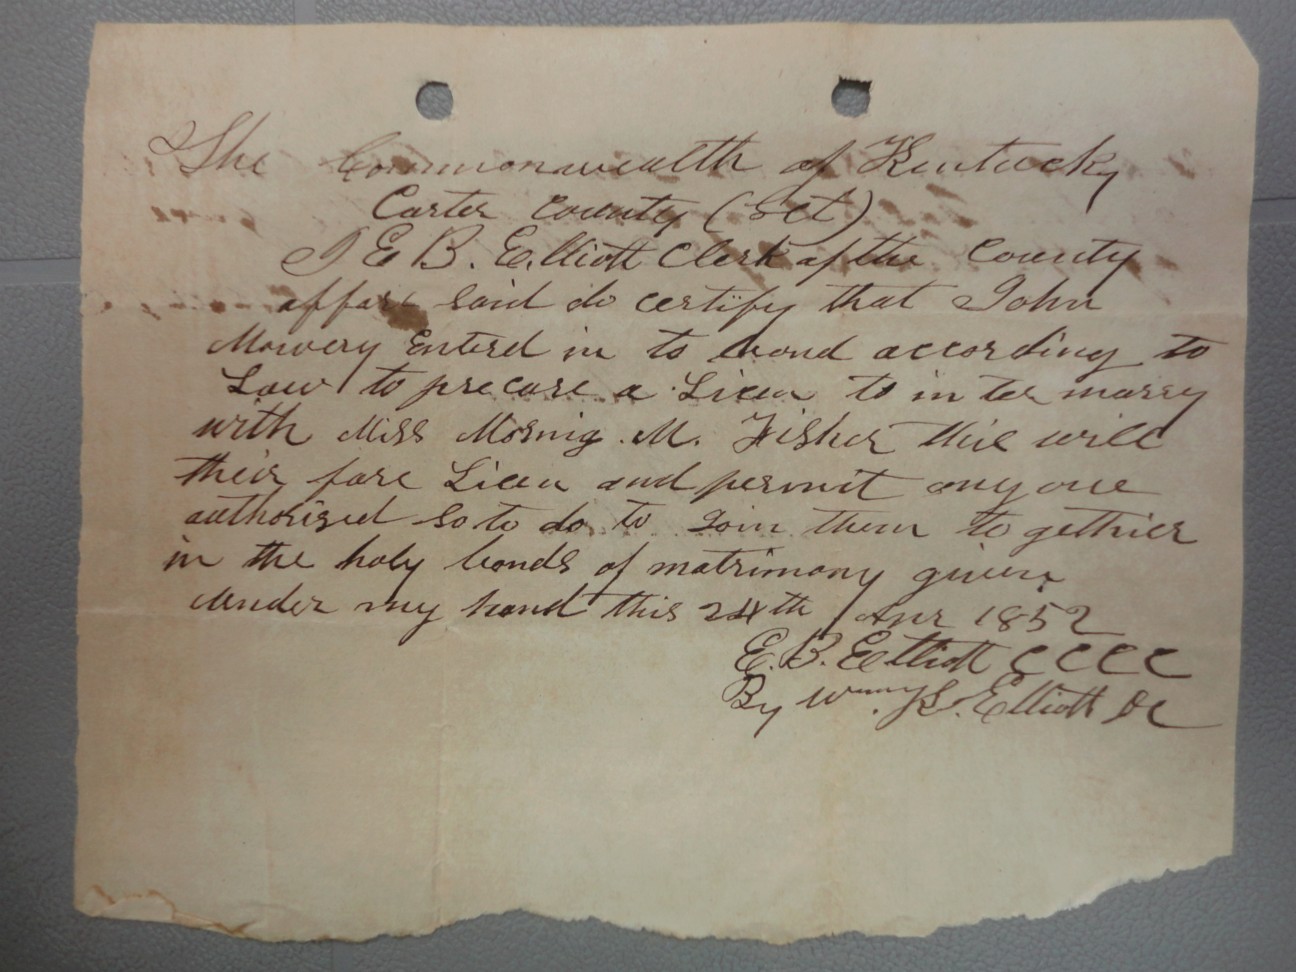 The Commonwealth of Kentucky
Carter County (Sct)
I E B. Elliott Clerk of the County
affore said do certify that John
Mowery Enterd in to bond according to
Law to precure a Licen to in ter marry
with Miss Mornig M. Fisher this will
their fore Licen and permit any one
authorised so to do to Join them to gethier
in the holy bonds of matrimony given
under my hand this 24th Apr 1852
E. B. Elliott C C C C
By Wm S. Elliott DC